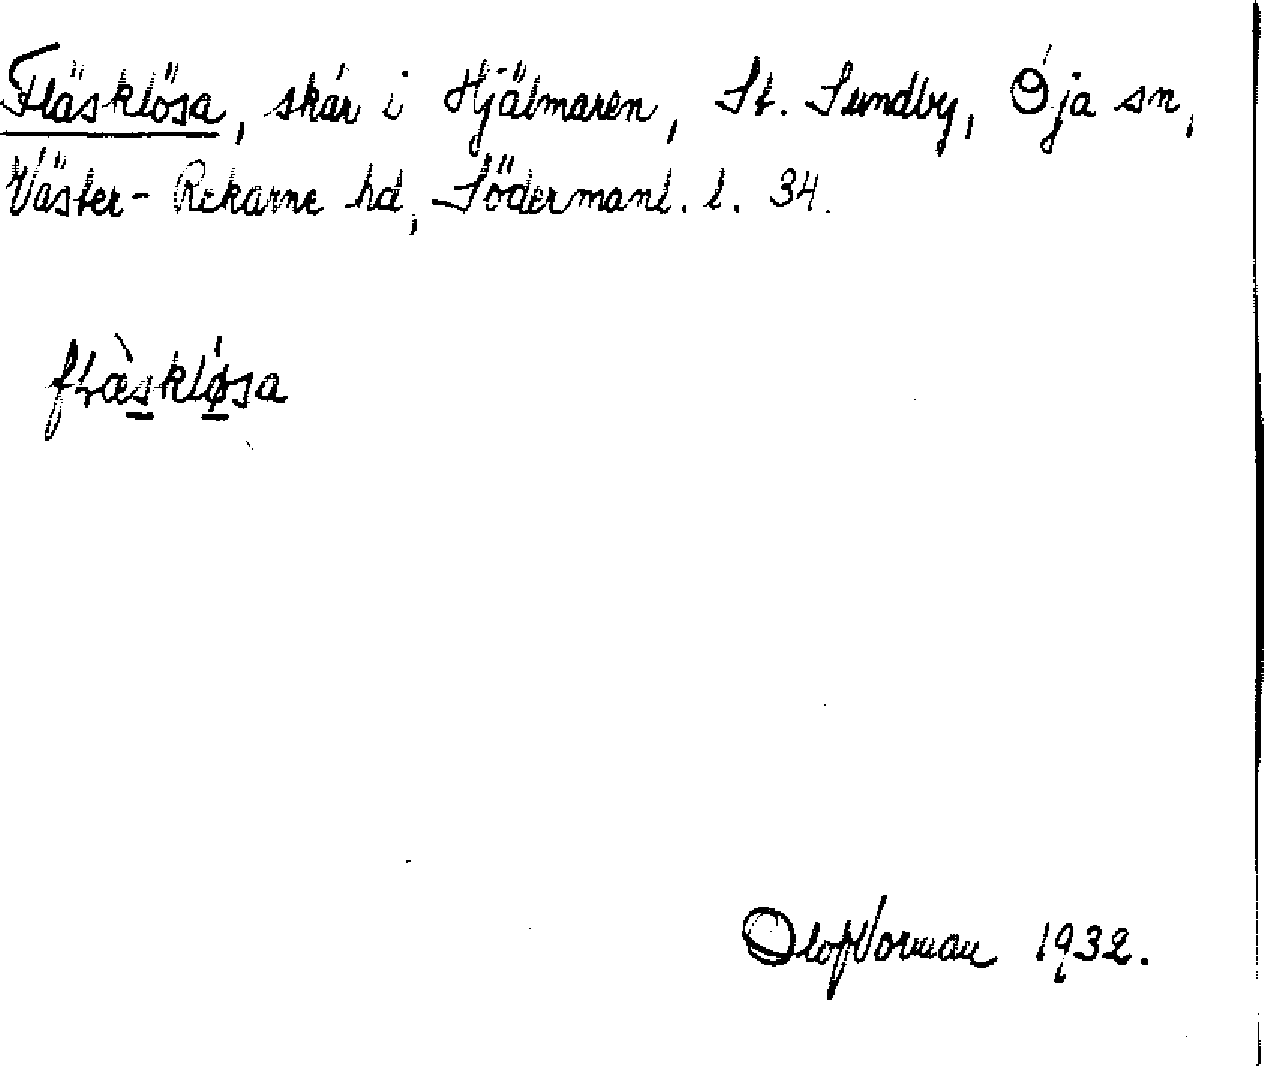 Fläsklösa, skär i Hjälmaren, St. Sundby, Öja sn,
Väster-Rekarne hd, Södermanl. l. 34.
flæskløsa
Olof Vorman 1932.